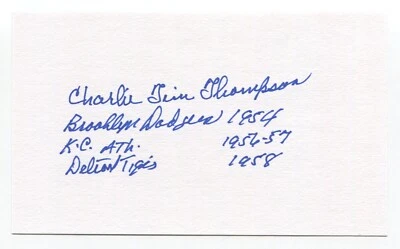 Charlie Tim Thompson
Brooklyn Dodgers 1954
K.C. Ath. 1956-57
Detroit Tigers 1958